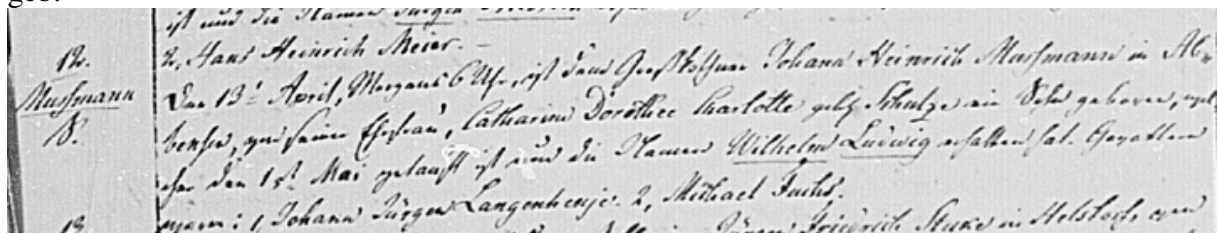 ist und die Namen Jürgen Friedrich
12. 2, Hans Heinrich Meier. –
Mussmann Den 13t April, Morgens 6 Uhr, ist dem Großköthner Johann Heinrich Mussmann in Ab-
S. bensen, von seiner Ehefrau, Catharine Dorothee Charlotte geb. Schulze ein Sohn geboren, wel-
cher den 1st Mai getauft ist und die Namen Wilhelm Ludwig erhalten hat. Gevattern
waren: 1, Johann Jürgen Langenhenje. 2, Michael Fuchs.
13. Jürgen Friedrich in Helstorf, von